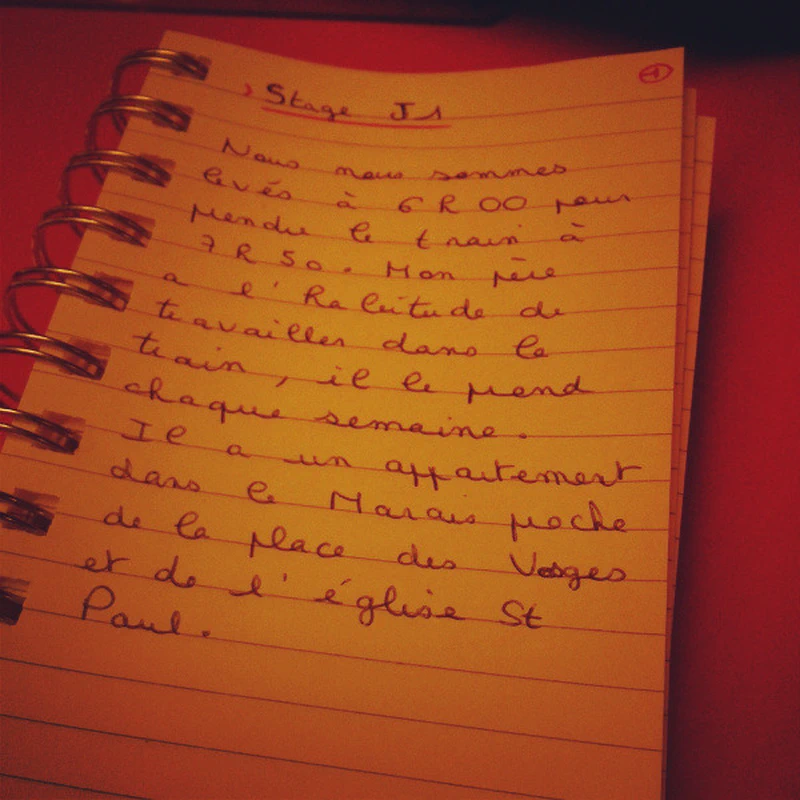 1
Stage J1
Nous nous sommes
levés à 6h00 pour
prendre le train à
7h50. Mon père
a l'habitude de
travailler dans le
train, il le prend
chaque semaine.
Il a un appartement
dans le Marais proche
de la place des Vosges
et de l'église St
Paul.